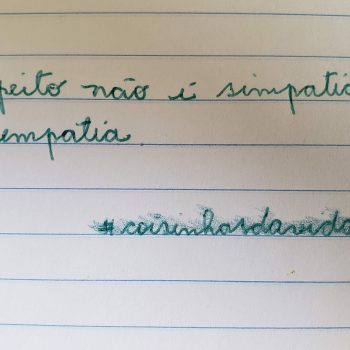 peito não é simpatia
empatia.
#coisinhasdavida